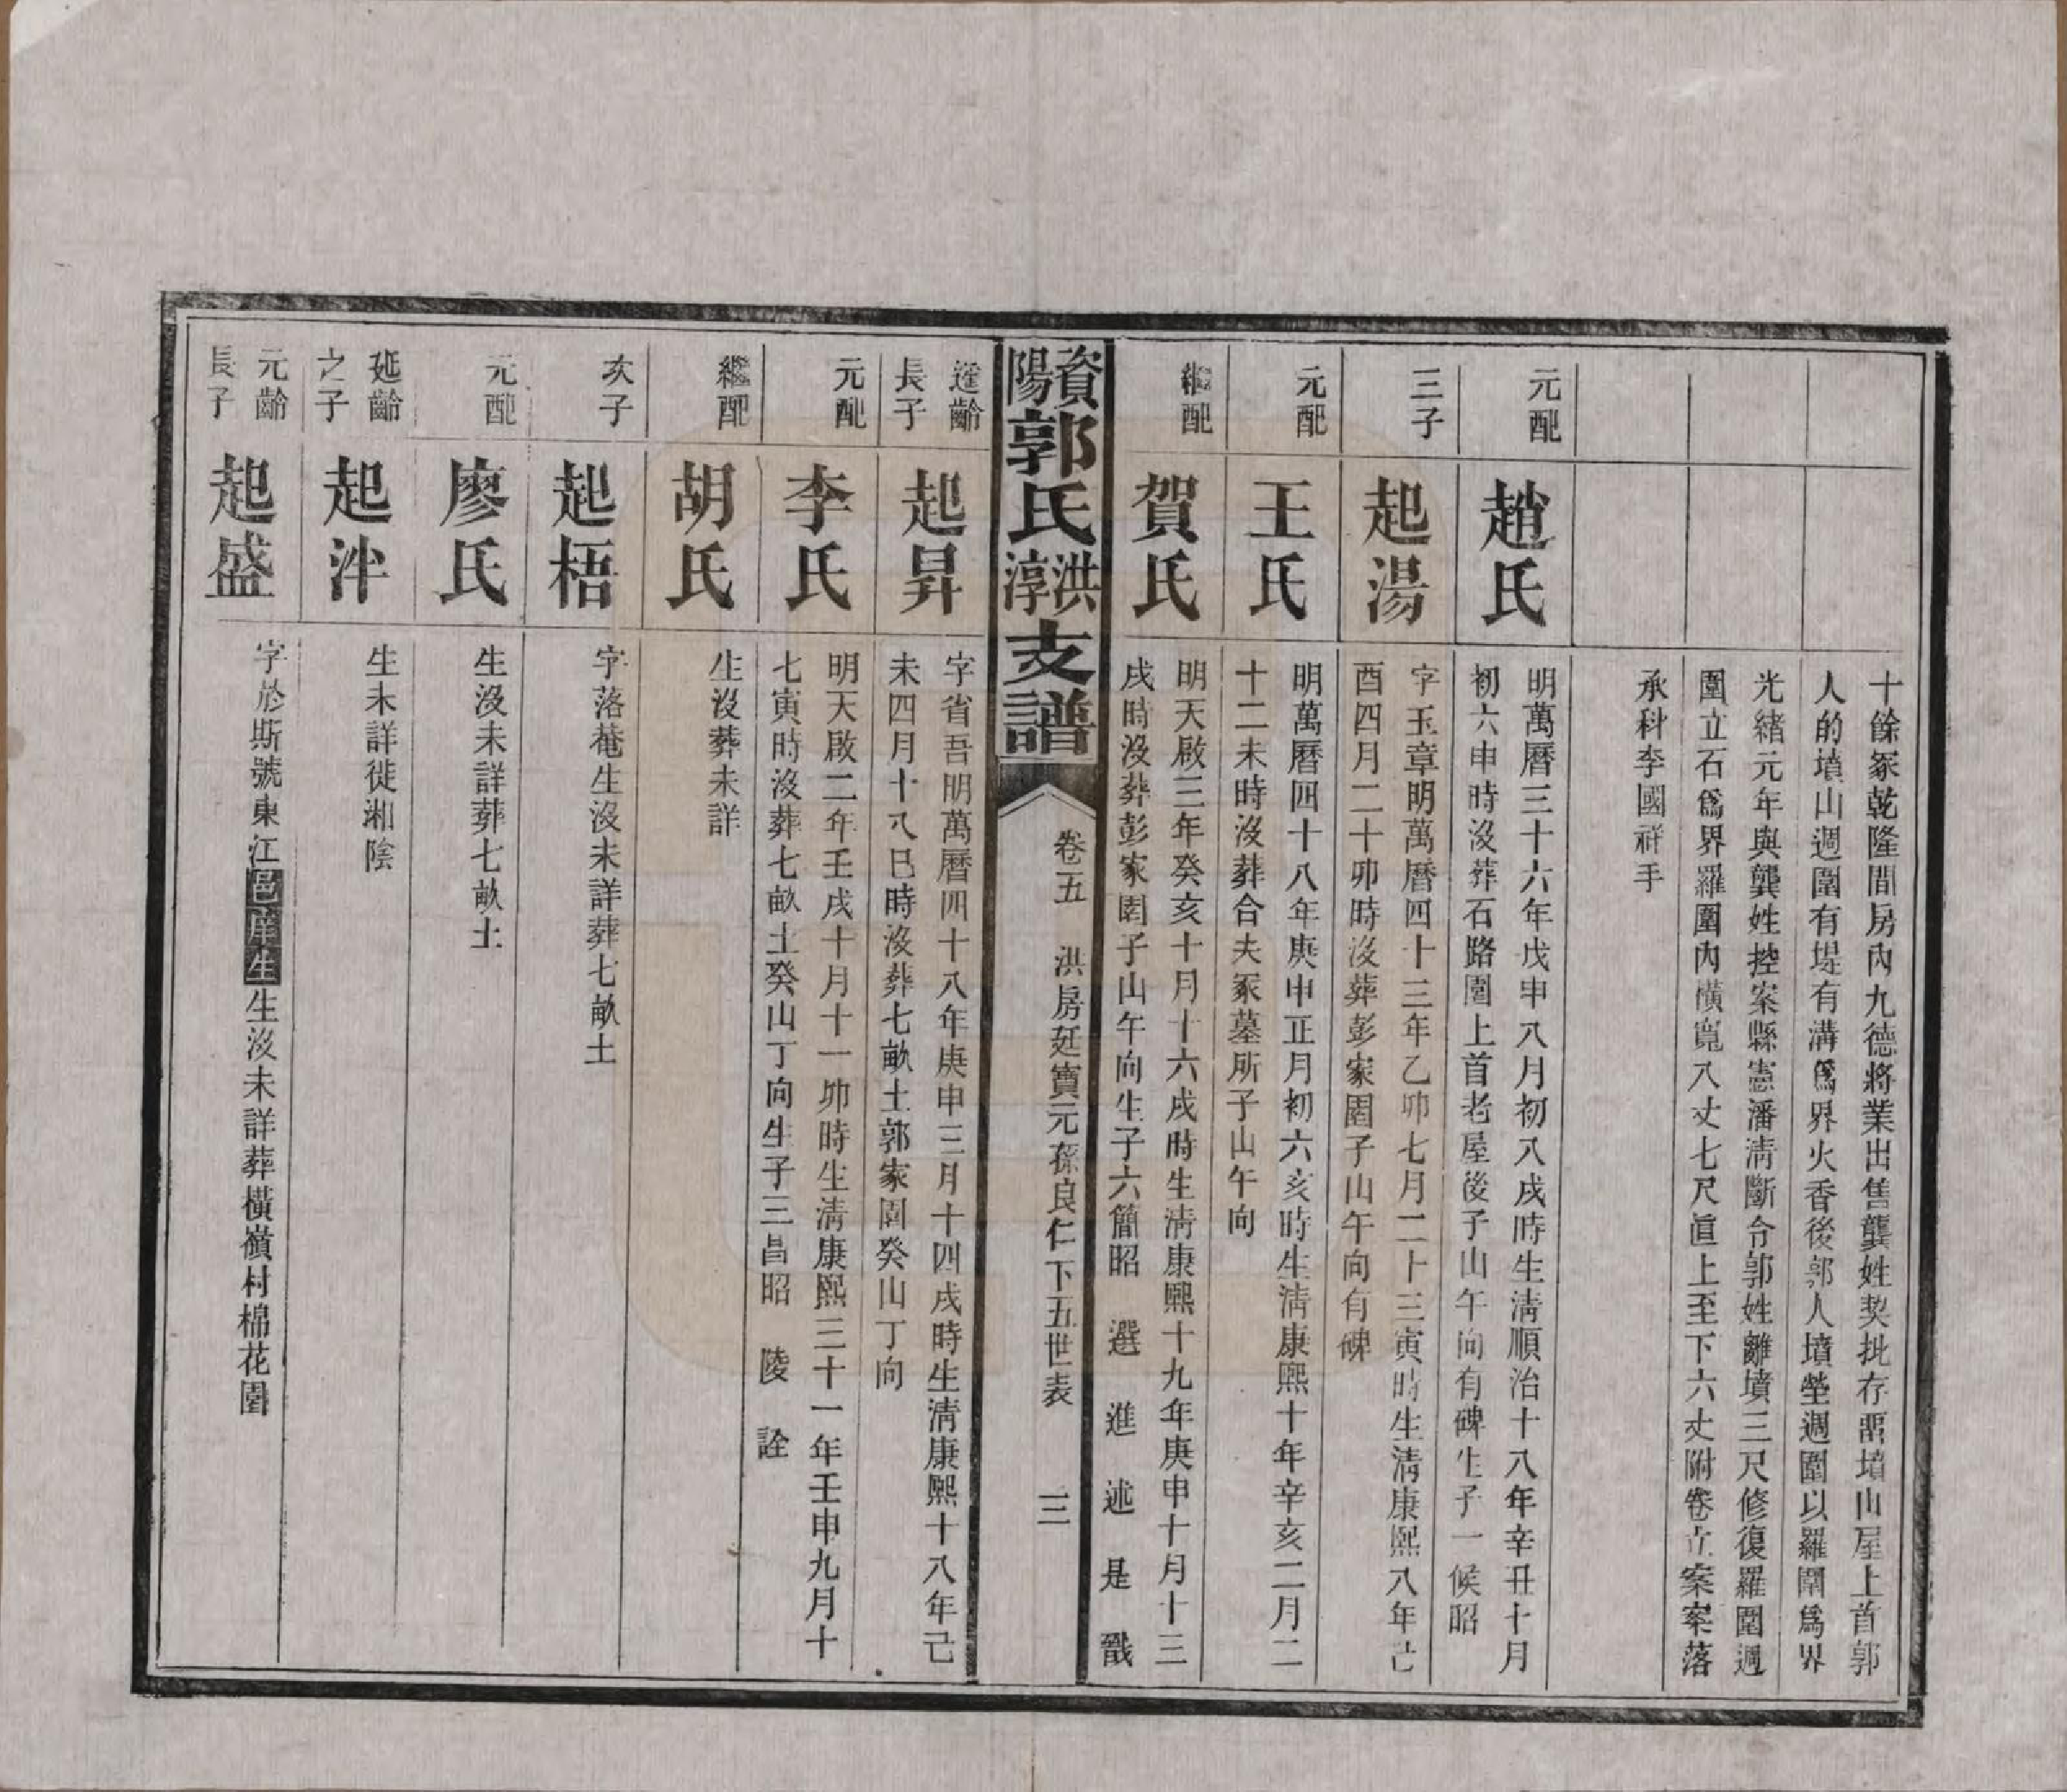 十餘冢乾隆間房內九德將業出售龔姓契批存畱墳山屋上首郭
人的墳山週圍有堤有溝爲界火香後郭人墳塋週圍以羅圍爲界
光緒元年與龔姓控案縣憲潘淸斷令郭姓離墳三尺修復羅圍週
圍立石爲界羅圍內橫寬八丈七尺直上至下六丈附卷立案案落
承科李國祥手
元配
趙氏
明萬曆三十六年戊申八月初八戌時生淸順治十八年辛丑十月
初六申時沒葬石路園上首老屋後子山午向有碑生子一候昭
三子
起湯
字玉章明萬曆四十三年乙卯七月二十三寅時生淸康熙八年己
酉四月二十卯時沒葬彭家園子山午向有碑
元配
王氏
明萬曆四十八年庚申正月初六亥時生淸康熙十年辛亥二月二
十二未時沒葬合夫冢墓所子山午向
繼配
賀氏
明天啟三年癸亥十月十六戌時生淸康熙十九年庚申十月十三
戌時沒葬彭家園子山午向生子六簡昭 選 進 述 是 戬
資陽郭氏洪淳支譜
卷五 洪房廷寶元孫良仁下五世表 三
遐齡
長子
起昇
字省吾明萬曆四十八年庚申三月十四戌時生淸康熙十八年己
未四月十八巳時沒葬七畝土郭家園癸山丁向
元配
李氏
明天啟二年壬戌十月十一卯時生淸康熙三十一年壬申九月十
七寅時沒葬七畝土癸山丁向生子三昌昭 陵 詮
繼配
胡氏
生沒葬未詳
次子
起梧
字落菴生沒未詳葬七畝土
元配
廖氏
生沒未詳葬七畝土
延齡
之子
起泮
生未詳徙湘陰
元齡
長子
起盛
字於斯號東江邑庠生生沒未詳葬橫嶺村棉花園